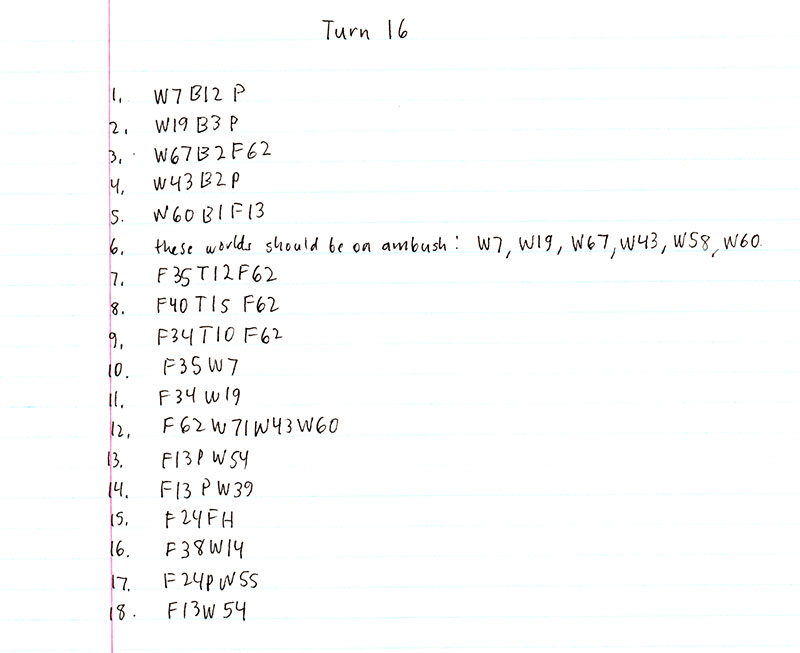 Turn 16
1. W7B12P
2. W19B3P
3. W67B2F62
4. W43B2P
5. W60B1F13
6. these worlds should be on ambush: W7, W19, W67, W43, W58, W60.
7. F35T12F62
8. F40T15 F62
9. F34T10F62
10. F35W7
11. F34W19
12. F62W71W43W60
13. F13PW54
14. F13PW39
15. F24FH
16. F38W14
17. F24PW55
18. F13W54